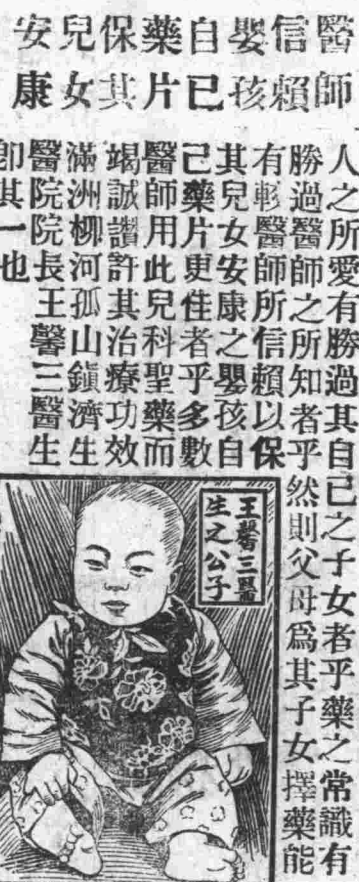 醫師
信賴
嬰孩
自己
藥片
保其
兒女
安康
人之所愛有勝過其自己之子女者乎藥之常識有
勝過醫師之所知者乎然則父母爲其子女擇藥能
有較醫師所信賴以保
其兒女安康之嬰孩自
己藥片更佳者乎多數
醫師用此兒科聖藥而
竭誠讚許其治療功效
滿洲柳河孤山鎭濟生
醫院院長王馨三醫生
卽其一也
王馨三醫
生之公子